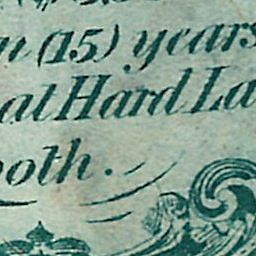 n (15) years
at Hard La
ooth.